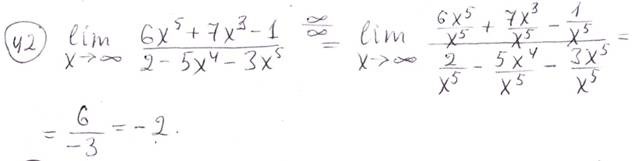 (42) lim x→∞ (6x⁵ + 7x³ − 1)/(2 − 5x⁴ − 3x⁵) =^(∞/∞) lim x→∞ (6x⁵/x⁵ + 7x³/x⁵ − 1/x⁵)/(2/x⁵ − 5x⁴/x⁵ − 3x⁵/x⁵) =
= 6/−3 = −2.